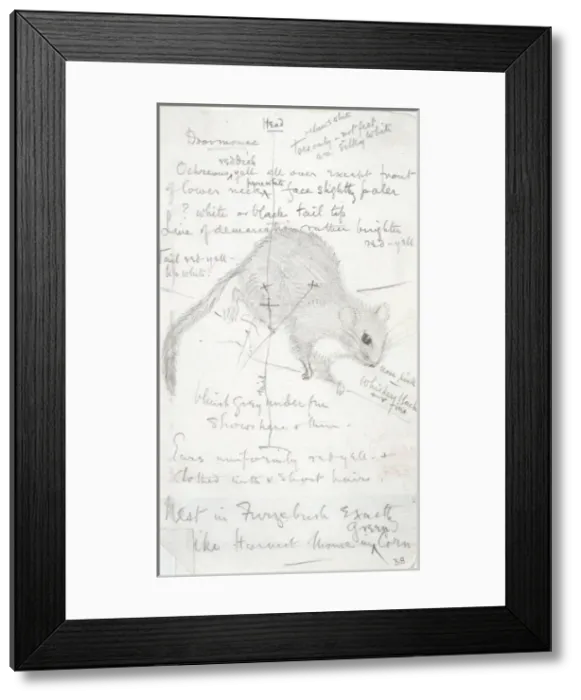 Head
Doormouse
Toes only - not feet
are silky white
reddish
Ochreous, yell all over except front
pure white
of lower neck, face slightly paler
? white or black tail tip
Line of demarcation rather brighter
red-yell
Tail red-yell-
no white?
Whiskers black
fine
bluish grey under fur
shows here &
Ears uniformly red-yell- &
clothed with short hairs.
Nest in Furzebush Exactly
like Harvest Mouse in Green Corn
38